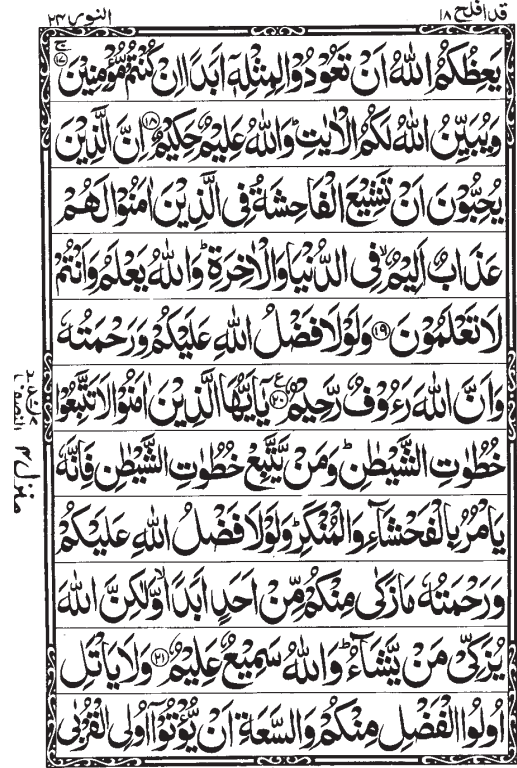 قد افلح ١٨
النور ٢٤
يَعِظُكُمُ اللّٰهُ اَنْ تَعُوْدُوْا لِمِثْلِهٖۤ اَبَدًا اِنْ كُنْتُمْ مُّؤْمِنِيْنَ ۚ‏﴿۱۷﴾
وَيُبَيِّنُ اللّٰهُ لَكُمُ الْاٰيٰتِ ؕ وَاللّٰهُ عَلِيْمٌ حَكِيْمٌ‏﴿۱۸﴾ اِنَّ الَّذِيْنَ
يُحِبُّوْنَ اَنْ تَشِيْعَ الْفَاحِشَةُ فِى الَّذِيْنَ اٰمَنُوْا لَهُمْ
عَذَابٌ اَلِيْمٌ ۙ فِى الدُّنْيَا وَالْاٰخِرَةِ ؕ وَاللّٰهُ يَعْلَمُ وَاَنْتُمْ
لَا تَعْلَمُوْنَ‏﴿۱۹﴾ وَلَوْلَا فَضْلُ اللّٰهِ عَلَيْكُمْ وَرَحْمَتُهٗ
وَاَنَّ اللّٰهَ رَءُوْفٌ رَّحِيْمٌ‏﴿۲۰﴾ ع يٰۤاَيُّهَا الَّذِيْنَ اٰمَنُوْا لَا تَتَّبِعُوْا
خُطُوٰتِ الشَّيْطٰنِ ؕ وَمَنْ يَّتَّبِعْ خُطُوٰتِ الشَّيْطٰنِ فَاِنَّهٗ
يَاْمُرُ بِالْفَحْشَآءِ وَالْمُنْكَرِ ؕ وَلَوْلَا فَضْلُ اللّٰهِ عَلَيْكُمْ
وَرَحْمَتُهٗ مَا زَكٰى مِنْكُمْ مِّنْ اَحَدٍ اَبَدًا ۙ وَّلٰكِنَّ اللّٰهَ
يُزَكِّىْ مَنْ يَّشَآءُ ؕ وَاللّٰهُ سَمِيْعٌ عَلِيْمٌ‏﴿۲۱﴾ وَلَا يَاْتَلِ
اُولُوا الْفَضْلِ مِنْكُمْ وَالسَّعَةِ اَنْ يُّؤْتُوْۤا اُولِى الْقُرْبٰى
منزل ۴